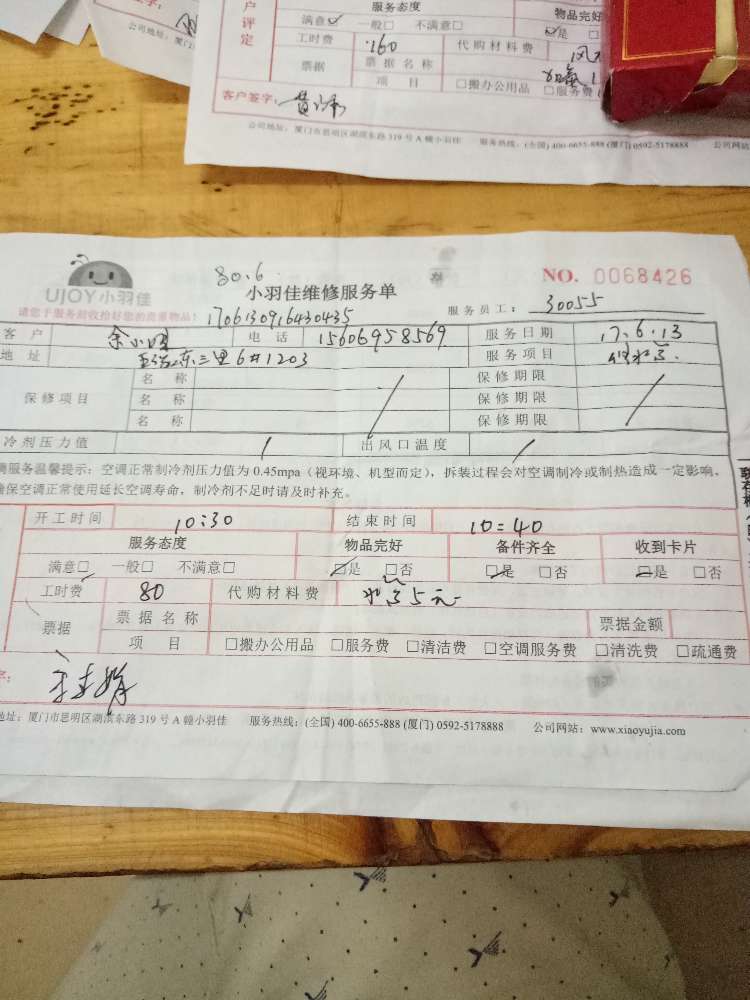 户评定
服务态度 物品完好
满意☑ 一般□ 不满意□ ☑是 □
工时费 160 代购材料费
票据 票据名称
项 目 □搬办公用品 □服务费
客户签字:
公司地址:厦门市思明区湖滨东路319号A幢小羽佳 服务热线:(全国) 400-6655-888 (厦门) 0592-5178888 公司网站
公司地址:厦门
80.6
UJOY小羽佳 小羽佳维修服务单 NO. 0068426
请您于服务前收拾好您的贵重物品! 1706130916430435 服务员工: 30055
客 户 余小 电 话 15606958569 服务日期 17.6.13
地 址 东三里6#1203 服务项目
保修项目 名 称 保修期限
名 称 保修期限
名 称 保修期限
冷剂压力值 / 出风口温度 /
服务温馨提示:空调正常制冷剂压力值为 0.45mpa(视环境、机型而定),拆装过程会对空调制冷或制热造成一定影响,
保空调正常使用延长空调寿命,制冷剂不足时请及时补充。
开工时间 10:30 结束时间 10:40
服务态度 物品完好 备件齐全 收到卡片
满意□ 一般□ 不满意□ ☑是 □否 ☑是 □否 ☑是 □否
工时费 80 代购材料费 5元
票据 票据名称 票据金额
项 目 □搬办公用品 □服务费 □清洁费 □空调服务费 □清洗费 □疏通费
字:
地址:厦门市思明区湖滨东路319号A幢小羽佳 服务热线:(全国) 400-6655-888 (厦门) 0592-5178888 公司网站:www.xiaoyujia.com